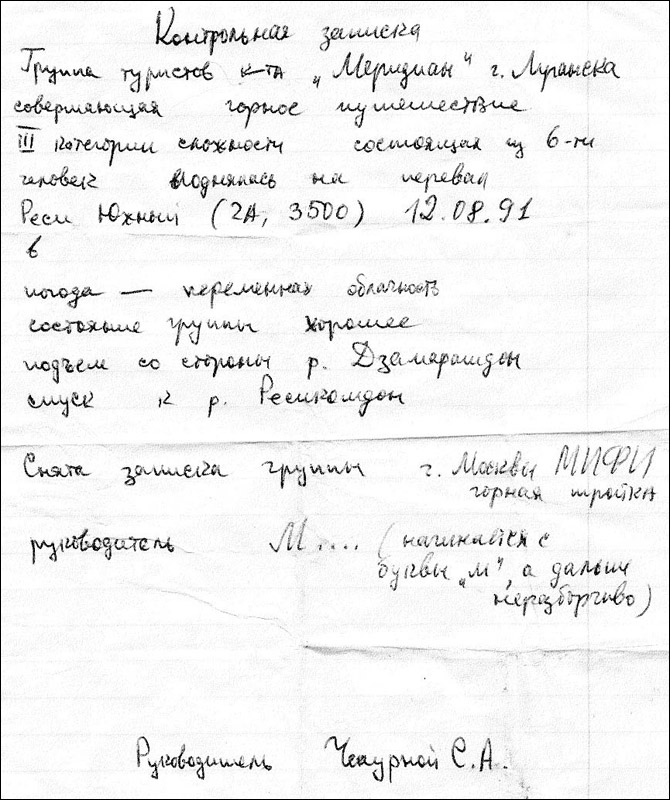 Контрольная записка
Группа туристов к-та „Меридиан" г. Луганска
совершающая горное путешествие
III категории сложности состоящая из 6-ти
человек поднялась на перевал
Реси Южный (2А, 3500) 12.08.91
в
погода — переменная облачность
состояние группы хорошее
подъем со стороны р. Дзамарашдон
спуск к р. Ресикомдон
Снята записка группы г. Москвы МИФИ
горная тройка
руководитель М.... (начинается с
буквы „М", а дальше
неразборчиво)
Руководитель Чепурной С.А.